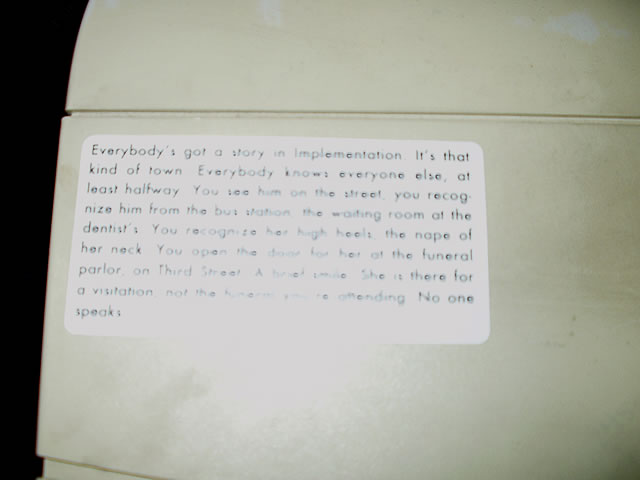 Everybody's got a story in Implementation. It's that
kind of town. Everybody knows everyone else, at
least halfway. You see him on the street, you recog-
nize him from the bus station, the waiting room at the
dentist's. You recognize her high heels, the nape of
her neck. You open the door for her at the funeral
parlor, on Third Street. A brief smile. She is there for
a visitation, not the funeral you're attending. No one
speaks.